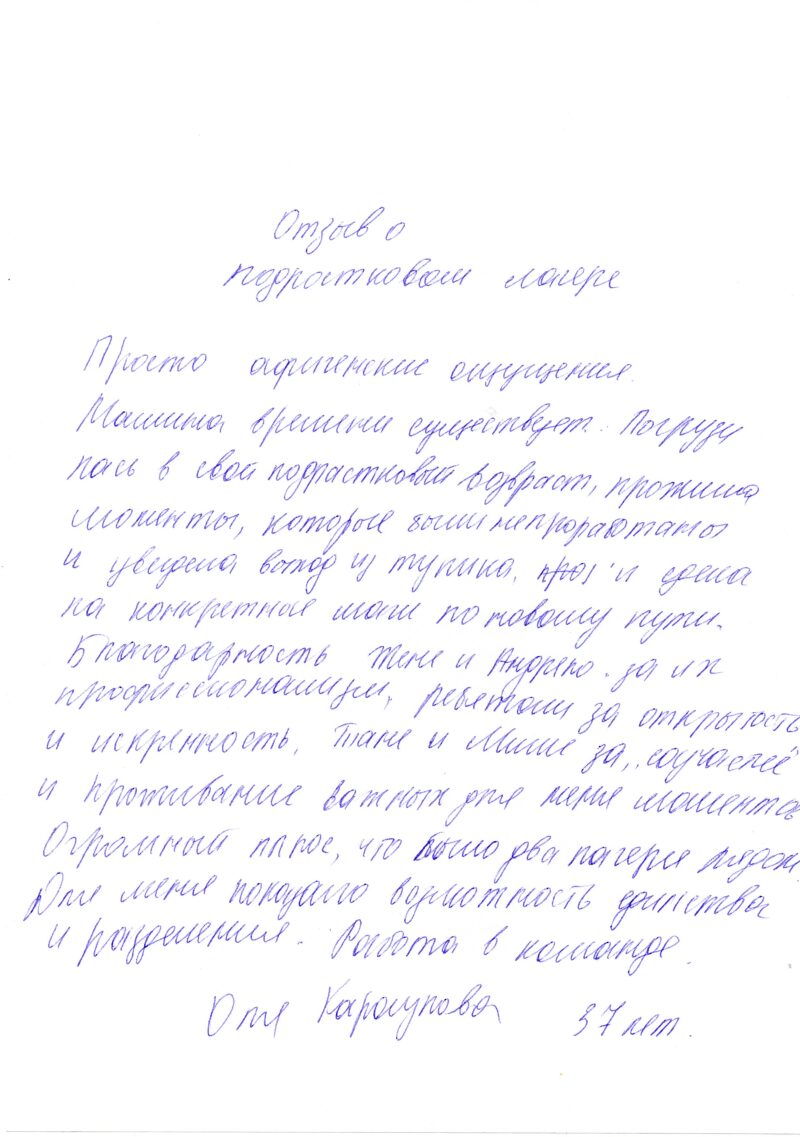 Отзыв о
подрастковом лагере
Просто афигенские ощущения.
Машина времени существует. Погрузи
лась в свой подрастковый возраст, прожила
моменты, которые были непроработаны
и увидела выход из тупика, и
на конкретные шаги по новому пути.
Благодарность Жене и Андрею за их
профессионализм, ребятам за открытость
и искренность, Тане и Мише за „соучастие"
и проживание важных для меня моментов
Огромный плюс, что было два лагеря рядом
Для меня показало возможность единства
и разделения. Работа в команде.
Оля 37 лет.